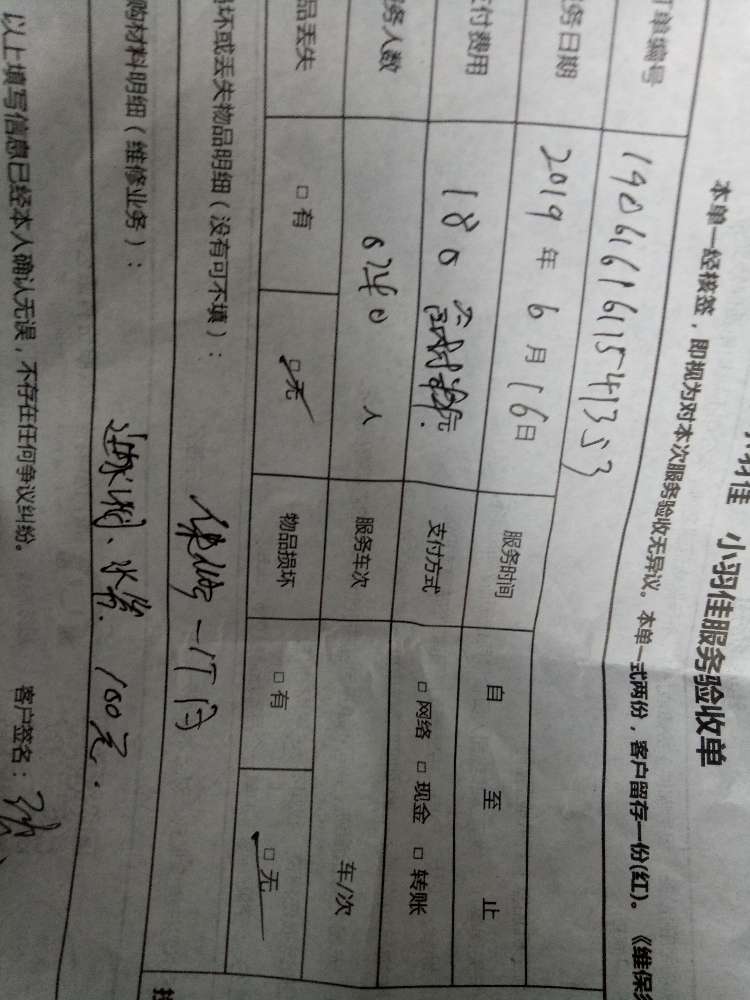 羽佳 小羽佳服务验收单
本单一经接签，即视为对本次服务验收无异议。本单一式两份，客户留存一份(红)。《维保
单编号
务日期 2019 年 6 月 16 日 服务时间 自 至 止
付费用 180 元 支付方式 □ 网络 □ 现金 □ 转账
务人数 人 服务车次 车/次
品丢失 □ 有 □ 无 物品损坏 □ 有 □ 无
坏或丢失物品明细（没有可不填）：
购材料明细（维修业务）： 水管. 100元.
以上填写信息已经本人确认无误，不存在任何争议纠纷。 客户签名：